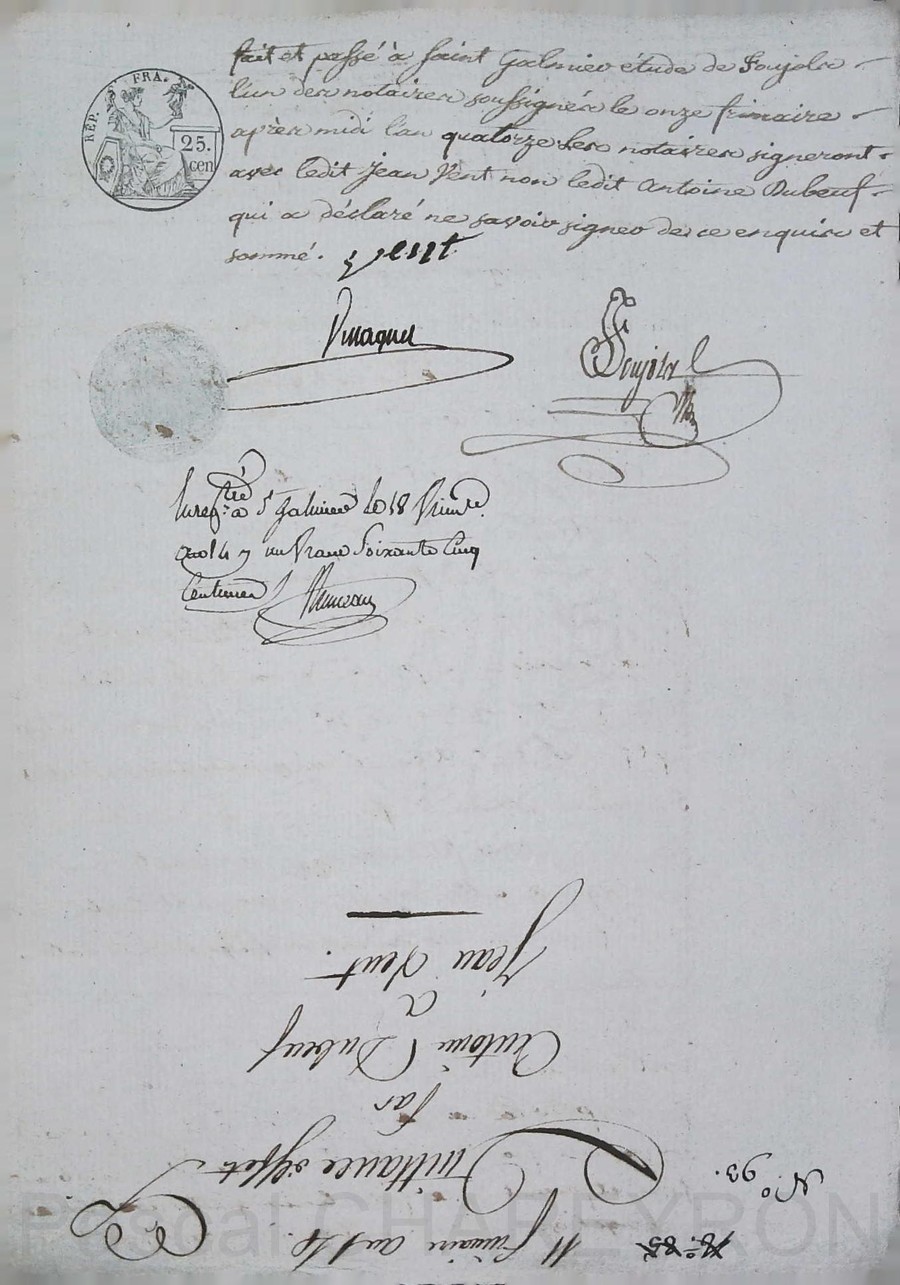 RÉP. FRA.
25.
cen
fait et passé à saint Galmier étude de Soujola
l'un des notaires soussignés le onze frimaire
après midi l'an quatorze les notaires signeront
avec ledit Jean Vent non ledit Antoine Dubeuf
qui a déclaré ne savoir signer de ce enquis et
sommé.
Soujola
à St Galmier le 18 frimre
an 14 un franc soixante cinq
Centimes
11 frimaire an 14.
No 93.
Quittance
par
Antoine Dubeuf
a
Jean Vent.
Pascal CHAFEYRON